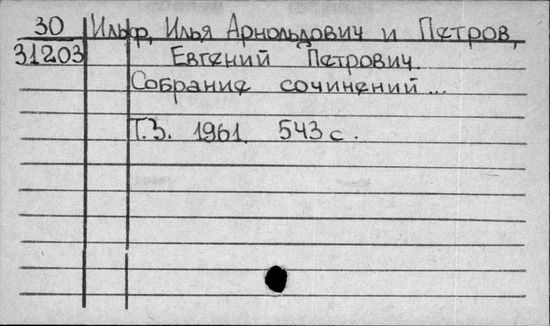 30 Ильф, Илья Арнольдович и Петров,
31203 Евгений Петрович.
Собрание сочинений...
Т.3. 1961. 543 с.